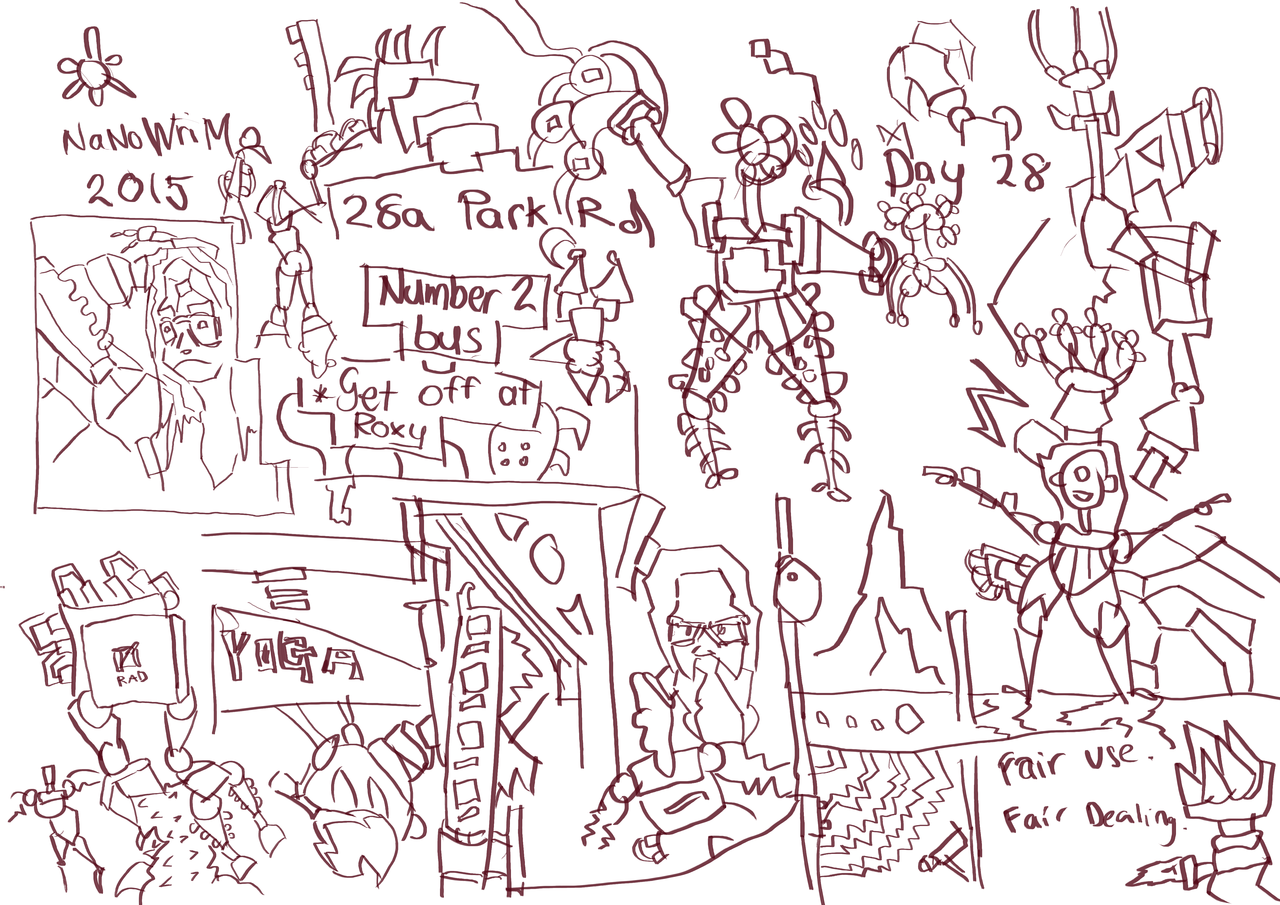 NaNoWriM
2015
28a Park Rd
Day 28
Number 2
bus
*Get off at
Roxy
RAD
YOGA
Fair use.
Fair Dealing.